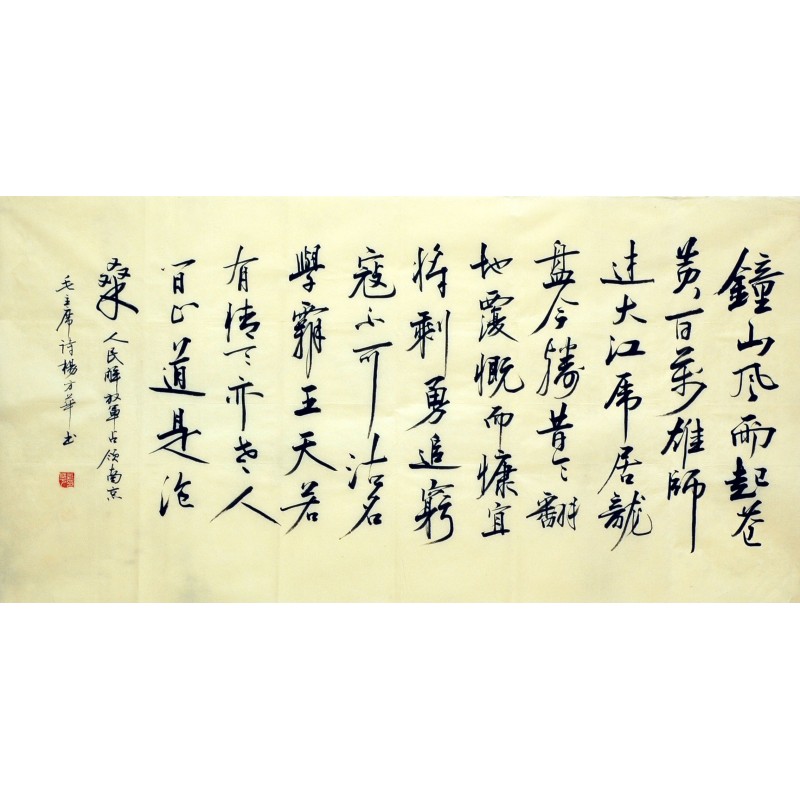 鐘山风雨起苍
黄百萬雄師
过大江虎居龍
盘今勝昔天翻
地覆慨而慷宜
将剩勇追窮
寇不可沽名
學霸王天若
有情天亦老人
间正道是沧
桑 人民解放軍占领南京
毛主席诗 楊 華书